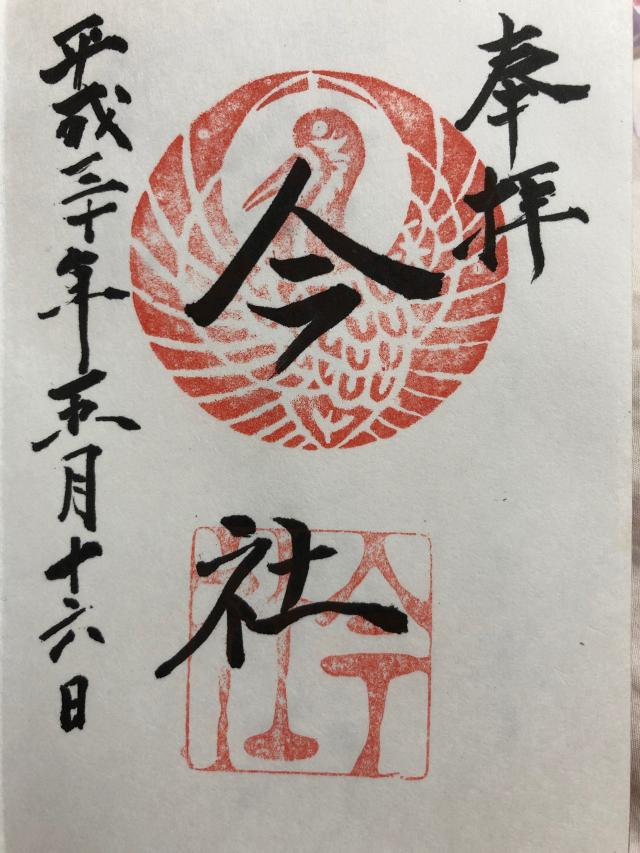 奉拝
今社
今社
平成三十年五月十六日